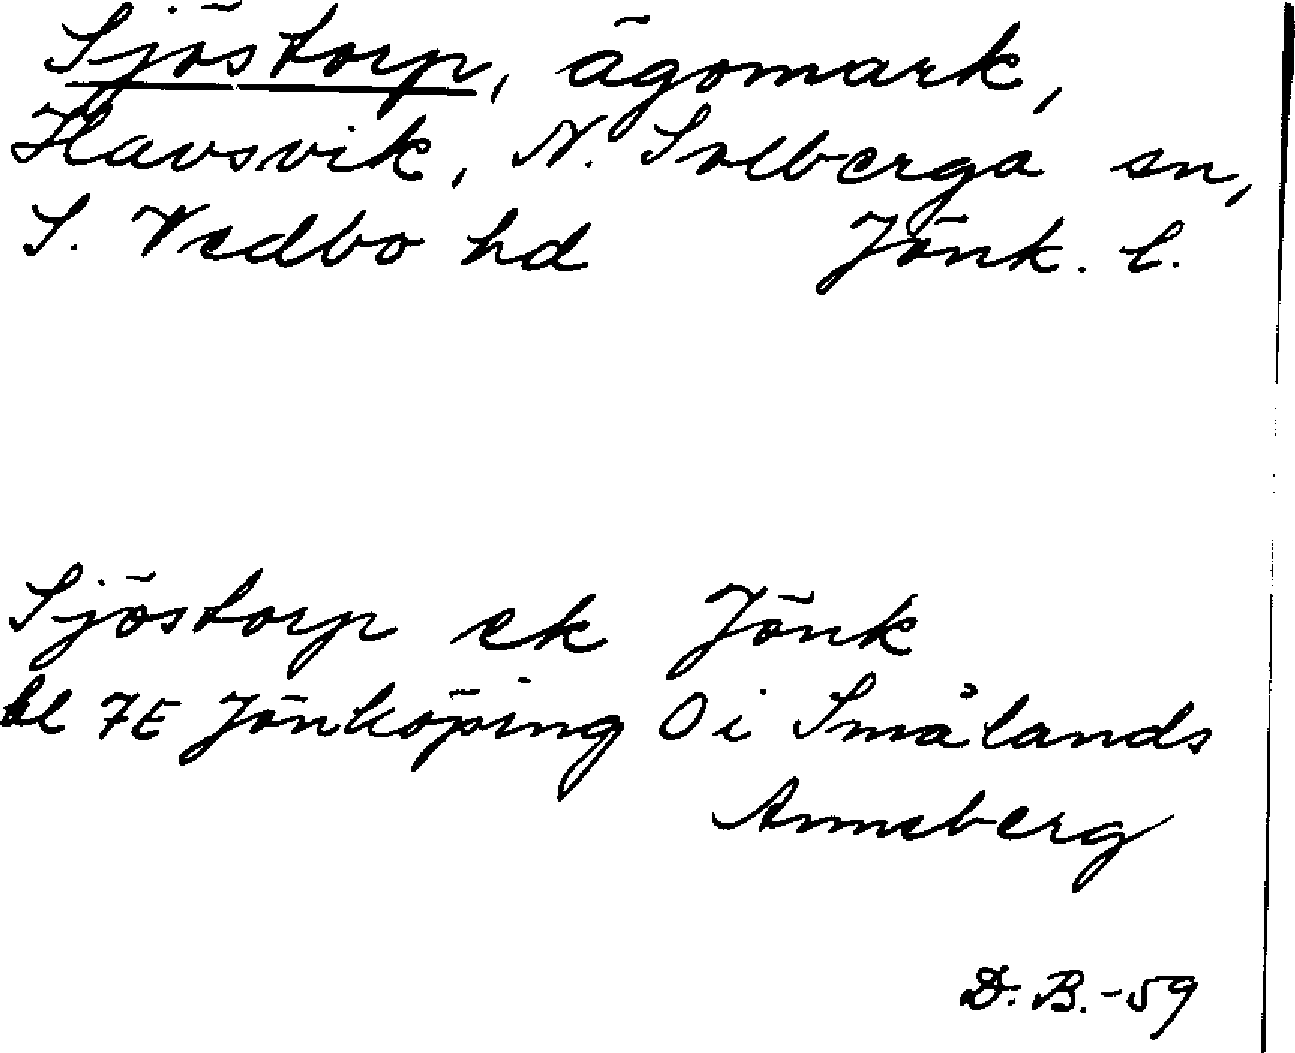 Sjöstorp, ägomark,
Havsvik, N. Solberga sn,
S. Vedbo hd Jönk. l.
Sjöstorp ek Jönk
bl 7E Jönköping O i Smålands
Anneberg
D. B. -59